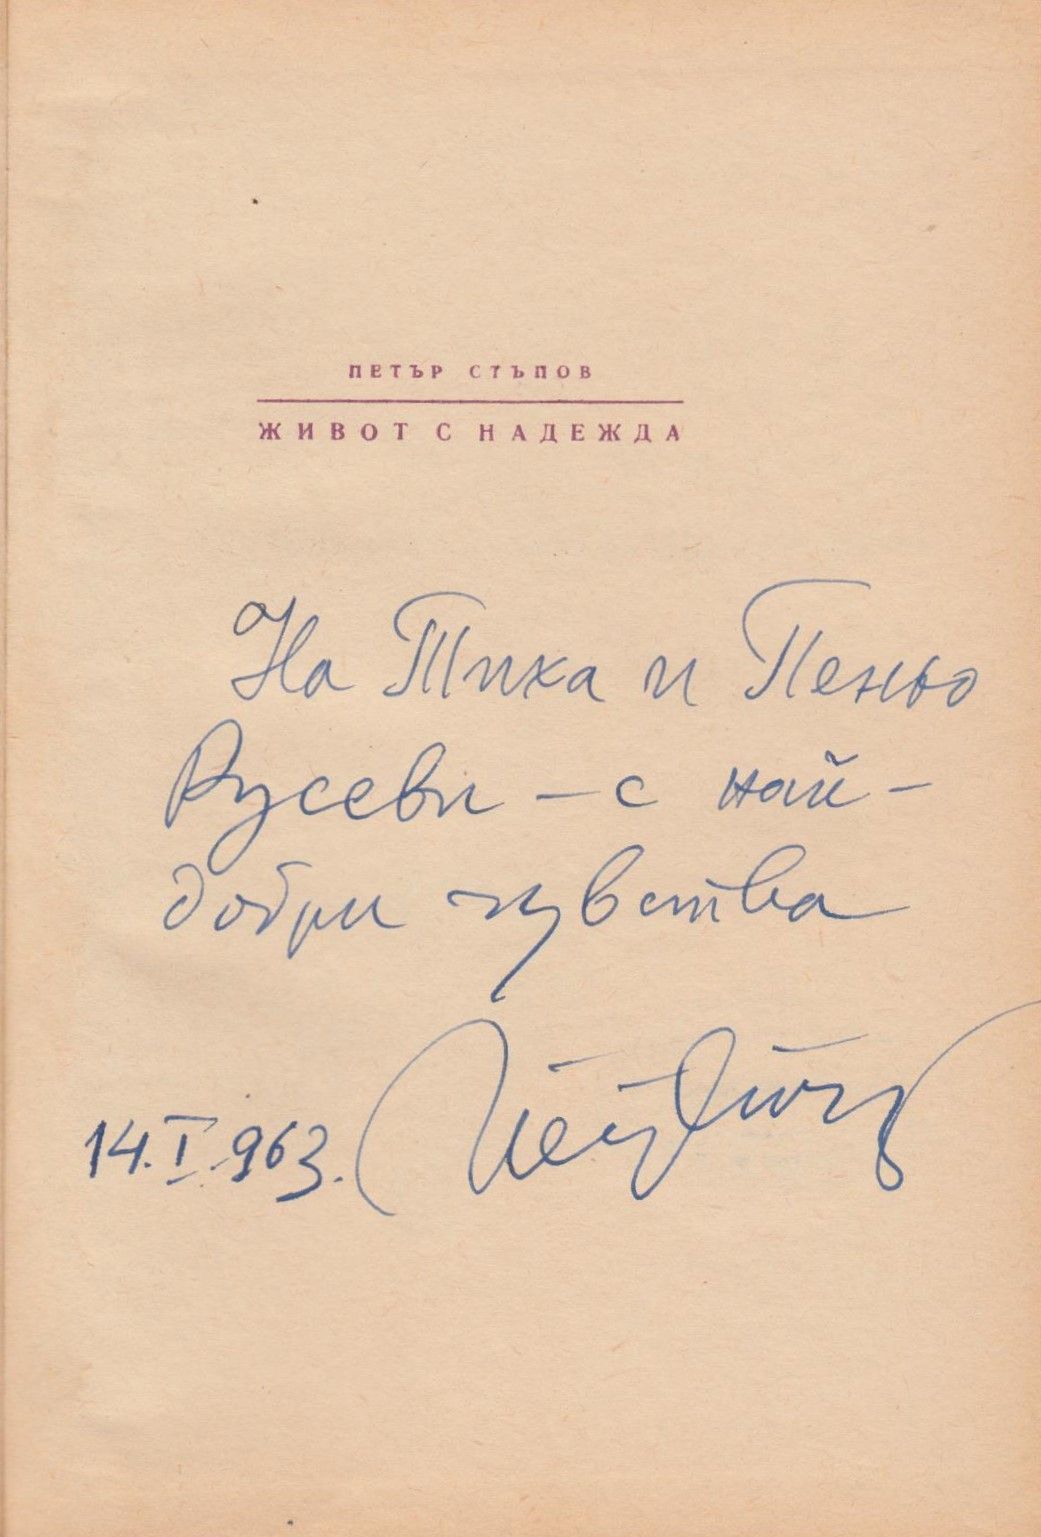 ПЕТЪР СТЪПОВ
ЖИВОТ С НАДЕЖДА
На Тиха и Пеньо
Русеви – с най-
добри чувства
14.I.963.